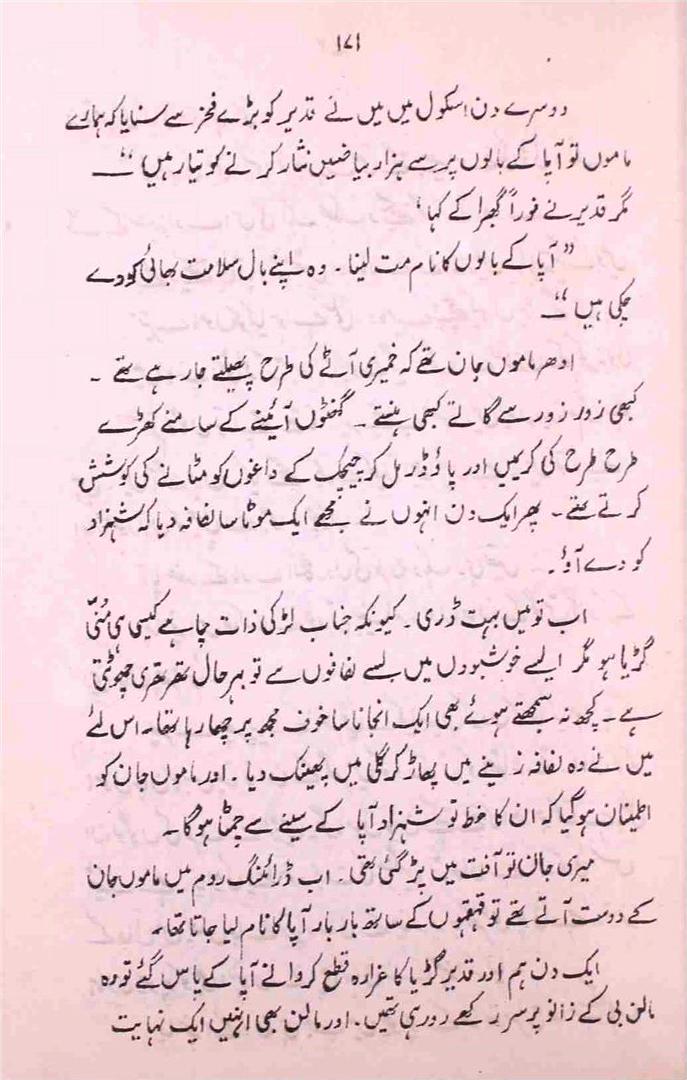 ۱۷۱
دوسرے دن اسکول میں میں نے قدیر کو بڑے فخر سے سنایا کہ ہمارے
ماموں تو آپا کے بالوں پر سے ہزار بیاضیں نثار کرنے کو تیار ہیں“ —
مگر قدیر نے فوراً گھبرا کے کہا‘
”آپا کے بالوں کا نام مت لینا۔ وہ اپنے بال سلامت بھائی کو دے
چکی ہیں“ —
ادھر ماموں جان تھے کہ خمیری آٹے کی طرح پھیلتے جا رہے تھے ۔
کبھی زور زور سے گاتے کبھی ہنستے ۔ گھنٹوں آئینے کے سامنے کھڑے
طرح طرح کی کریمیں اور پاؤڈر مل کر چیچک کے داغوں کو مٹانے کی کوشش
کرتے تھے۔ پھر ایک دن انہوں نے مجھے ایک موٹا سا لفافہ دیا کہ شہزاد
کو دے آؤ۔
اب تو میں بہت ڈری۔ کیونکہ جناب لڑکی ذات چاہے کیسی ہی مُنّی
گڑیا ہو مگر ایسے خوشبودوں میں بسے لفافوں سے تو بہرحال تھرتھری چھوٹتی
ہے۔ کچھ نہ سمجھتے ہوئے بھی ایک انجانا سا خوف مجھ پر چھا رہا تھا۔ اس لئے
میں نے وہ لفافہ زینے میں پھاڑ کر گلی میں پھینک دیا ۔ اور ماموں جان کو
اطمینان ہو گیا کہ ان کا خط تو شہزاد آپا کے سینے سے چمٹا ہوگا۔
میری جان تو آفت میں پڑ گئی تھی۔ اب ڈرائنگ روم میں ماموں جان
کے دوست آتے تھے تو قہقہوں کے ساتھ بار بار آپا کا نام لیا جاتا تھا۔
ایک دن ہم اور قدیر گڑیا کا غرارہ قطع کروانے آپا کے پاس گئے تو وہ
مالن بی کے زانو پر سر رکھے رو رہی تھیں۔ اور مالن بھی انہیں ایک نہایت